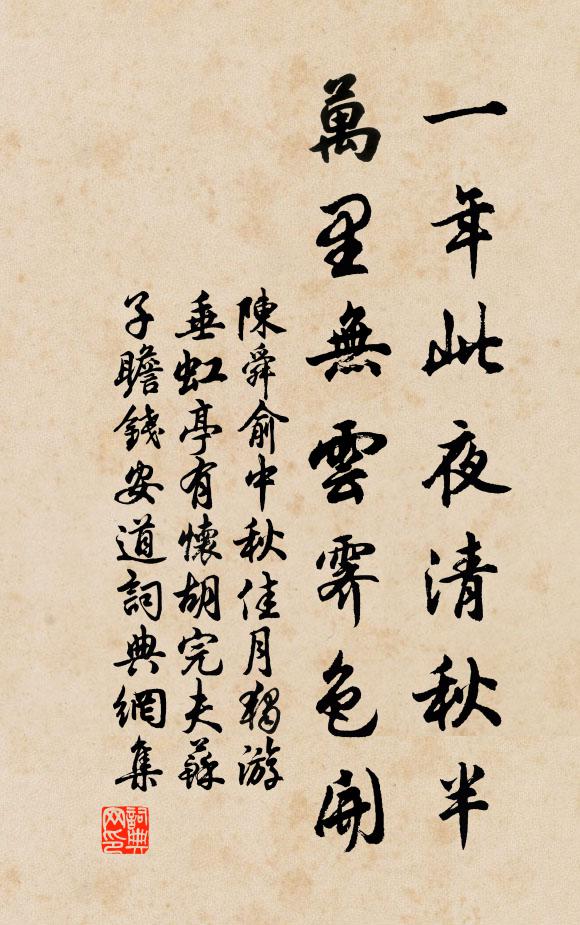 一年此夜清秋半
萬里無雲霽色開
陳舜俞中秋佳月獨游
垂虹亭有懷胡完夫蘇
子瞻錢安道詞典網集
詞典网印